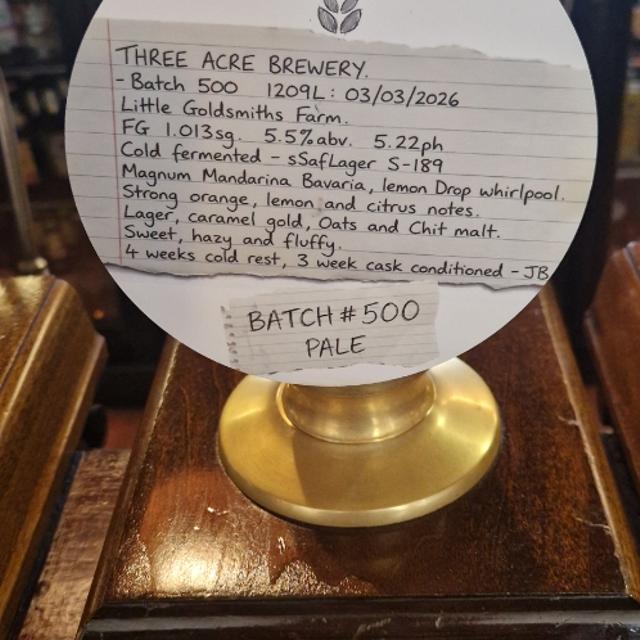 THREE ACRE BREWERY.
- Batch 500 1209L : 03/03/2026
Little Goldsmiths Farm.
FG 1.013sg. 5.5%abv. 5.22ph
Cold fermented - sSafLager S-189
Magnum Mandarina Bavaria, lemon Drop whirlpool.
Strong orange, lemon and citrus notes.
Lager, caramel gold, Oats and Chit malt.
Sweet, hazy and fluffy.
4 weeks cold rest, 3 week cask conditioned - JB
BATCH #500
PALE